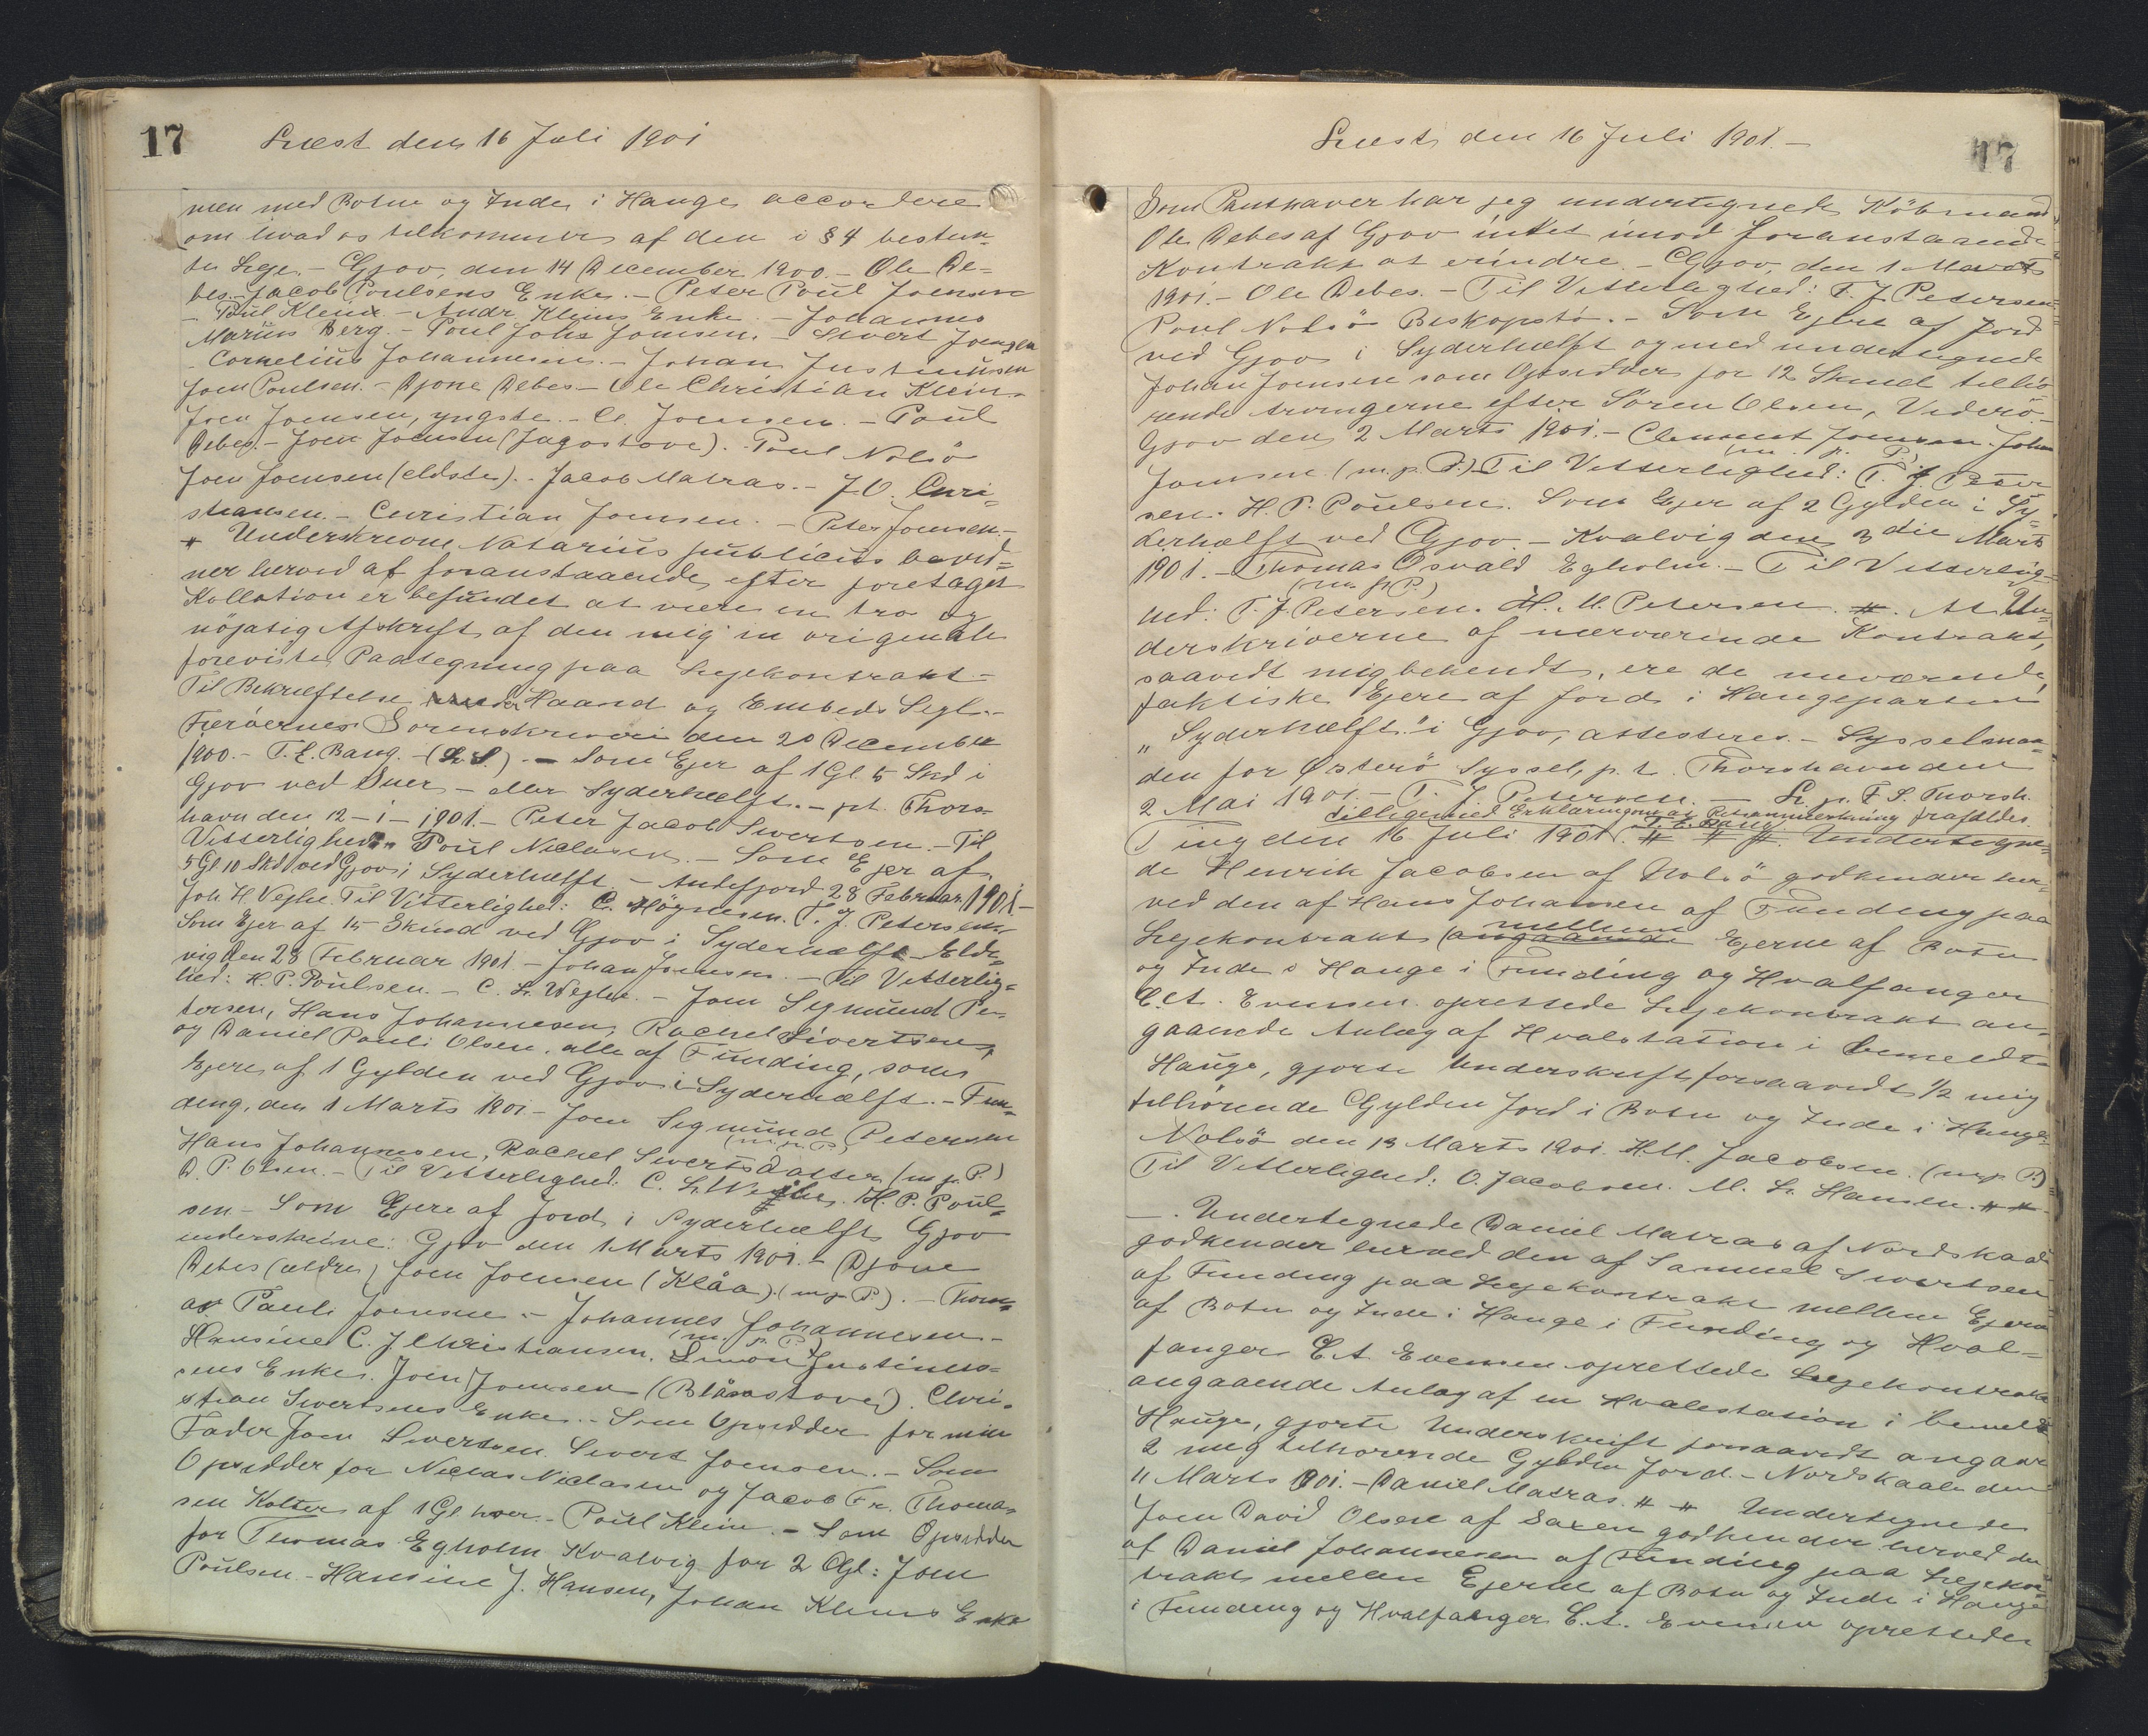 17
Læst den 16 Juli 1901
men med Botne og Inde i Hauge accordere
om hvad os tilkommer af den i § 4 bestem-
te Leje. - Gjov, den 14 December 1900. - Ole De-
bes. - Jacob Poulsens Enke. - Peter Poul Joensen
- Poul Klein - Andr. Kleins Enke. - Johannes
Marius Berg. - Poul Johs Joensen. - Sivert Joensen
- Cornelius Johannesen. - Johan Justinussen
Joen Poulsen. - Djone Debes - Ole Christian Klein.
Joen Joensen, yngste. - Cl. Joensen. - Poul
Debes. - Joen Joensen (Jagostove). Poul Nolsö
Joen Joensen (eldste). - Jacob Matras. - J. O. Chri-
stiansen. - Christian Joensen. - Peter Joensen. -
# Underskrevne Notarius publicus bevid-
ner herved af foranstaaende efter foretaget
Kollation er befundet at være en tro og
nöjagtig Afskrift af den mig in originale
foreviste Paategning paa Lejekontrakt. -
Til Bekræftelse under Haand og Embeds Segl. -
Færöernes Sorenskriveri den 20 December
1900. - T. E. Bang. - (L. S.). - Som Ejer af 1 Gl. 5 Skd i
Gjov ved Duer - eller Syderhælft. - pt. Thors-
havn den 12 - 1 - 1901. - Peter Jacob Sivertsen. - Til
Vitterlighed: Poul Niclasen. - Som Ejer af
5 Gl 10 Skd ved Gjov i Syderhælft. - Andefjord 28 Februar 1901. -
Joh. H. Vejhe. Til Vitterlighed: C. Högnesen. T. J. Petersen.
Som Ejer af 15 Skind ved Gjov i Syderhælft - Eldr-
vig den 28 Februar 1901. - Johan Joensen. - Til Vitterlig-
hed: H. P. Poulsen. - C. L. Wejhe. - Joen Sigmund Pe-
tersen, Hans Johannesen, Rachel Sivertsen
og Daniel Pauli Olsen, alle af Funding, som
Ejere af 1 Gylden ved Gjov i Syderhælft. - Fun-
ding, den 1 Marts 1901 - Joen Sigmund Petersen
(m. p. P.)
Hans Johannesen, Rachel Sivertsdatter (m. p. P.)
D. P. Olsen. - Til Vitterlighed. C. L. Wejhe. H. P. Poul-
sen - Som Ejere af Jord i Syderhælft Gjov
underskrive: Gjov den 1 Marts 1901. - Djone
Debes (ældre) Joen Joensen (Klåa) (m. p. P.). - Thom-
as Pauli Joensen. - Johannes Johannesen. -
(m. p. P.)
Hansine C. J. Christiansen. Simon Justinus-
sens Enke. Joen Joensen (Blåsastove). Chri-
stian Sivertsens Enke. - Som Opsidder for min
Fader Joen Sivertsen. Sivert Joensen. - Som
Opsidder for Niclas Niclasen og Jacob Fr. Thomas-
sen Kolter af 1 Gl. hver. - Poul Klein. - Som Opsidder
for Thomas Egholm Kvalvig for 2 Gl: Joen
Poulsen - Hansine J. Hansen, Johan Kleins Enke
Læst den 16 Juli 1901. -
17
Som Panthaver har jeg undertegnede Köbmand
Ole Debes af Gjov intet imod foranstaaende
Kontrakt at erindre. - Gjov, den 1 Marts
1901. - Ole Debes. - Til Vitterlighed: T. J. Petersen
Poul Nolsö Biskopstö. - Som Ejere af Jord
ved Gjov i Syderhælft og med undertegnede
Johan Joensen som Opsidder for 12 Skind tilhö-
rende Arvingerne efter Sören Olsen, Viderö
Gjov den 2 Marts 1901. - Clement Joensen. Johan
(m. p. P.)
Joensen (m. p. P.) Til Vitterlighed: T. J. Peter
sen. H. P. Poulsen. Som Ejer af 2 Gylden i Sy
derhælft ved Gjov. - Kvalvig den 3die Marts
1901. - Thomas Osvald Egholm. - Til Vitterlig-
(m. p. P.)
hed: T. J. Petersen. H. M. Petersen. #. At Un-
derskriverne af nærværende Kontrakt,
saavidt mig bekendt, ere de nuværende
faktiske Ejere af Jord i Haugeparten
„Syderhælft" i Gjov, attesteres. - Sysselman-
den for Österö Syssel, p. t. Thorshavn den
2 Mai 1901. - T. J. Petersen. - L. p. F. S. Thorsh.
tilligemed Erklæringen og Retsanmerkning frafaldes.
Ting den 16 Juli 1901. T. E. Bang # # #. Undertegne-
de Henrik Jacobsen af Nolsö godkender her-
ved den af Hans Johansen af Funding paa
mellem
Lejekontrakt (angaaende Ejerne af Botn
og Inde i Hauge i Funding og Hvalfanger
C. A. Evensen oprettede Lejekontrakt an-
gaaende Anlæg af Hvalstation i bemeldte
Hauge, gjorte Underskrift forsaavidt 1/2 mig
tilhörende Gylden Jord i Botn og Inde i Hauge.
Nolsö den 13 Marts 1901. H. M. Jacobsen. (m. p. P.)
Til Vitterlighed: O. Jacobsen. M. L. Hansen. # #
- . Undertegnede Daniel Matras af Nordskaale
godkender herved den af Samuel Sivertsen
af Funding paa Lejekontrakt mellem Ejerne
af Botn og Inde i Hauge i Funding og Hval-
fanger C. A. Evensen oprettede Lejekontrakt
angaaende Anlæg af en Hvalestation i bemeldte
Hauge, gjorte Underskrift forsaavidt angaar
2 mig tilhörende Gylden Jord. - Nordskaale den
11 Marts 1901. - Daniel Matras. # # Undertegnede
Joen David Olsen af Saxen godkender herved den
af Daniel Johannesen af Funding paa Lejekon-
trakt mellem Ejerne af Botn og Inde i Hauge
i Funding og Hvalfanger C. A. Evensen oprettede